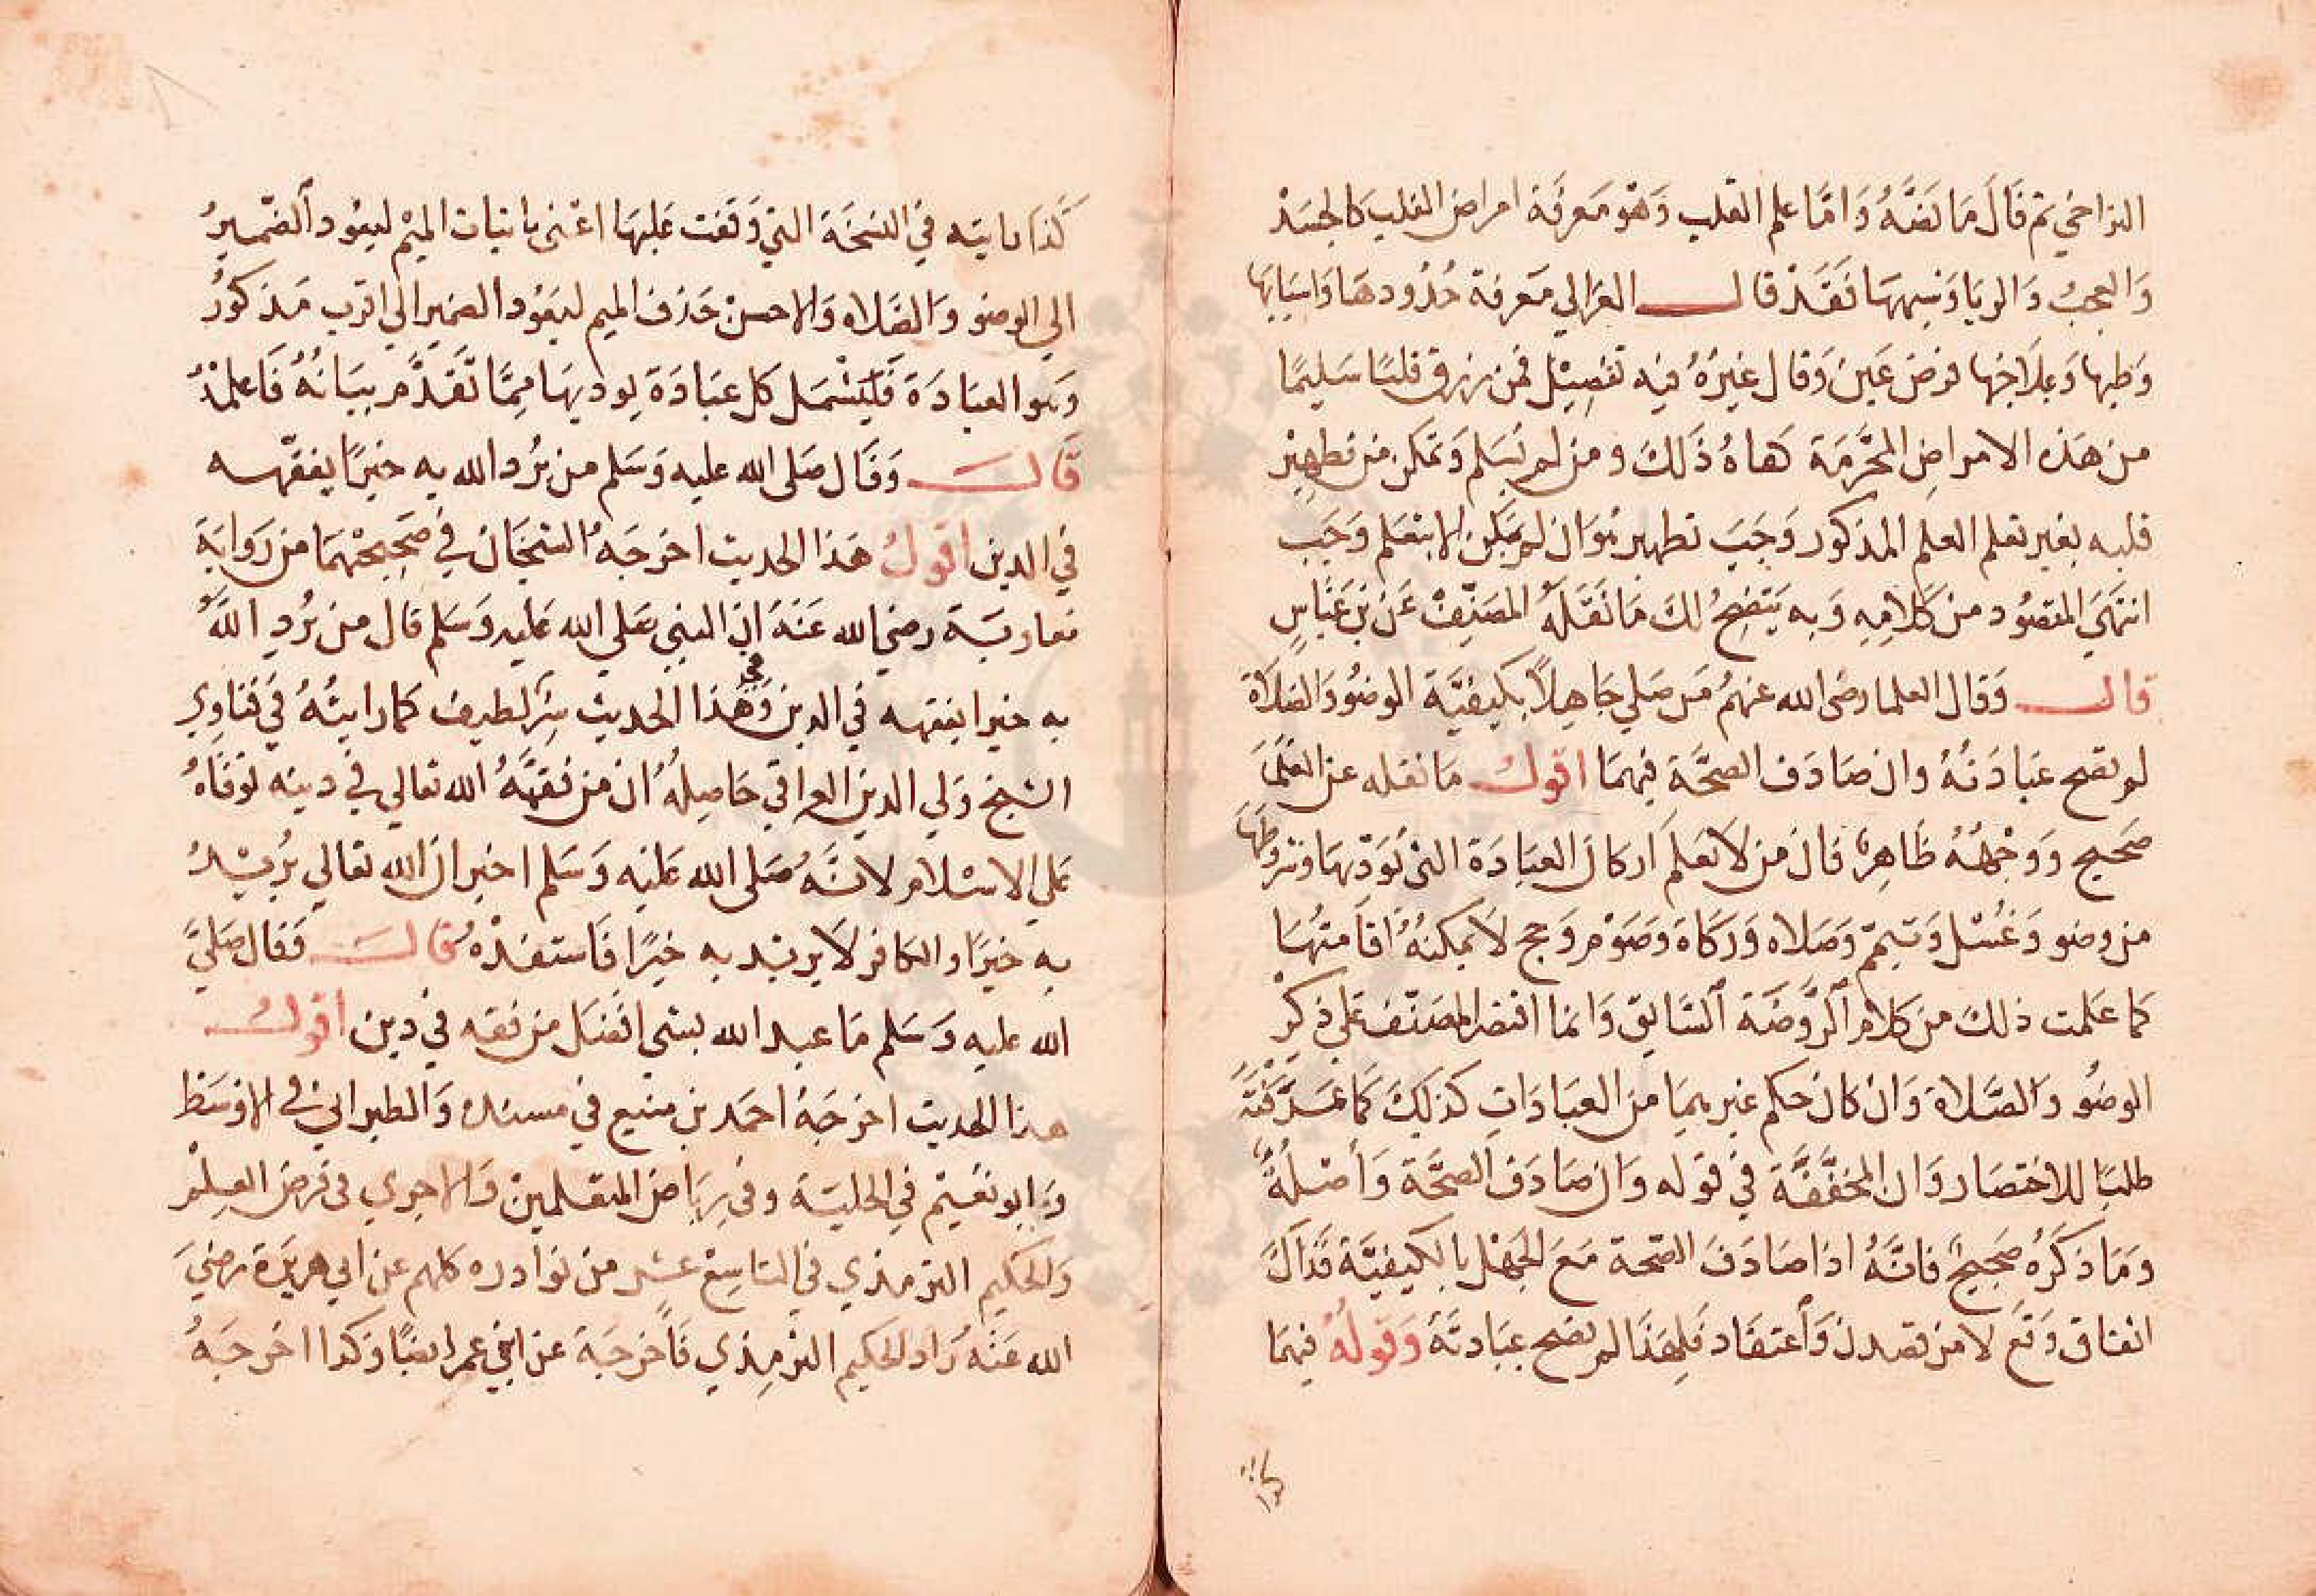 التراخي ثم قال ما نصَّهُ وَامّا علم القلب وَهْو مَعرفَة امراض القلب كالحسَدْ
وَالعجبُ وَالريَا وَشبههَا فَقَدْ قالـــ الغزالي مَعرفة حُدُودهَا وَاسبَابهَا
وَطبها وَعلَاجهَا فرض عَين وَقال غيرُهُ فيه تفصِيْل فمن رزق قلبًا سَليمًا
من هَذه الامراضِ المحَّرمَة كفاهُ ذَلكَ ومن لم يَسلم وَتمكن من تطهِيْر
قلبه بغير تعلم العلم المذكور وَجَبَ تطهيره وَان لم يمَكن الا بتعَلم وَجَبَ
انتهَيَ المقصُود من كَلَامِهِ وَبه يَتضِحُ لكَ مَا نَقَلهُ المصَنِّفْ عَن بْن عَبَّاسٍ
قالــــ وَقال العلما رضى الله عنهمُ مَن صَلي جَاهِلاً بكيفيَّة الوضُو وَالصَلَاة
لم تصح عبَادَتهُ وان صَادَف الصحَّة فيهمَا اقولُـــ مَا نقله عن العُلمَا
صَحيح وَوَجْههُ ظَاهِرٌ فان مَن لَا يعَلم اركان العبَادَة التى يُؤدّيهَا وشروطهَا
من وضو وَغُسْل وَتيممّ وَصَلاه وَزكَاة وَصَوْم وَحج لَا يمكنهُ اقَامتهَا
كما عَلمت ذلكَ من كلام الرَّوضَة السَّابق وَانما اقتصَر المصَنّف عَلي ذكرْ
الوضُو وَالصَّلاة وَان كان حكم غيرهمَا من العبَادَاتِ كذلِكَ كَمَا عَرَّفتهُ
طلبًا للاختصَار وَان المخفَّفَة في قوله وَان صَادَف الصحَّة وَاصْلهُ
وَمَا ذكَرَهُ صَحِيحٌ فانَّهُ اذا صَادَفَ الصّحة مَعَ الجَهْل بالكيفيَّة فَذَاكَ
اتفاق وَقعَ لَا من قصدٍ وَاعتقاد فلِهَذَا لم تصَح عبَادتَهُ وَقولهُ فيهمَا
كذا
كَذا رايته في النسخَة التي وَقفت عَليهَا اعْنى باثبات الميْم ليعُود الضّميرُ
الي الوضو وَالصَّلاه وَالاحسنْ حَذف الميم ليعَوُد الضمير الي اقرب مَذكورُ
وَهو العبَادَة فَيَشْمَل كل عبَادَة يوديهَا مِمَّا تَقَدَّم بيَانُهُ فَاعلمْهُ
قَالــــ وَقَال صَلى الله عليه وَسَلم من يُرد الله به خيرًا يفقهه
في الدين اقولُ هَذا الحديث اخرجَهُ الشيخَان في صَحِيحْهمَا من رَوَايَة
معاويَة رضي الله عَنهَ ان النبي صَلي الله عَليه وَسَلم قال من يُرِدِ اللَّهُ
به خيرا يفقهه في الدين وَفي هَذا الحديث سِر لطيف كما رايتُهُ في فتاوِي
الشيخ وَلي الدين العراقي حَاصِلُهُ ان من فقهَّهُ الله تعالي في دينه توفَاهُ
عَلي الاسْلام لانَّهُ صَلى الله عَليه وَسَلم اخبر ان الله تعالي يُريْدُ
به خيرًا والكافر لَا يريد به خيرًا فَاستفدْهُ قَالـــ فَقال صَليَّ
الله عليه وَسَلم مَا عبد الله بشي افضَل من فقه في دين اقولُـــ
هذا الحديث اخرجَهُ احمَد بن منيع في مسنده وَالطبرانيُ في الاوسَط
وَابو نعَيْم في الحليَة وفي ريَاض المتعَلمينْ وَالاجري في فرض العِلمْ
وَالحكيم الترمذي في التاسِع عشر من نوادره كلهم عن ابي هريَرَة رضيَ
الله عَنْهُ زاد الحكيم الترمِذي فَاخرجَهَ عن ابْن عمر ايضًا وَكذا اخرجَهُ